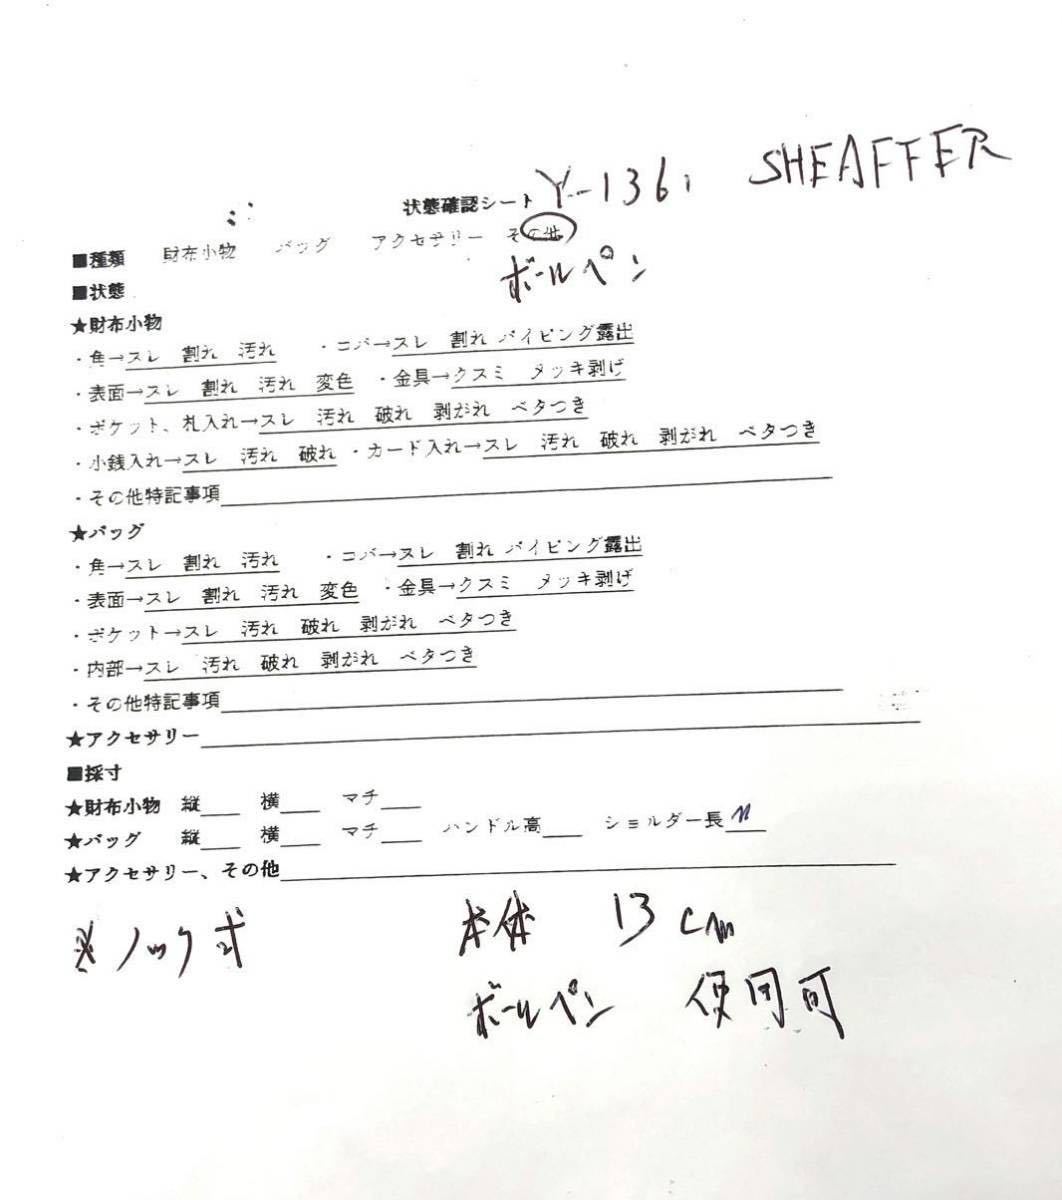 SHEAFFER
状態確認シート Y-1361
■種類 財布小物 バッグ アクセサリー その他
ボールペン
■状態
★財布小物
・角→スレ 割れ 汚れ ・コバ→スレ 割れ パイピング露出
・表面→スレ 割れ 汚れ 変色 ・金具→クスミ メッキ剥げ
・ポケット、札入れ→スレ 汚れ 破れ 剥がれ ベタつき
・小銭入れ→スレ 汚れ 破れ ・カード入れ→スレ 汚れ 破れ 剥がれ ベタつき
・その他特記事項
★バッグ
・角→スレ 割れ 汚れ ・コバ→スレ 割れ パイピング露出
・表面→スレ 割れ 汚れ 変色 ・金具→クスミ メッキ剥げ
・ポケット→スレ 汚れ 破れ 剥がれ ベタつき
・内部→スレ 汚れ 破れ 剥がれ ベタつき
・その他特記事項
★アクセサリー
■採寸
★財布小物 縦 横 マチ
★バッグ 縦 横 マチ ハンドル高 ショルダー長
★アクセサリー、その他
※ノック式 本体 13cm
ボールペン 使用可